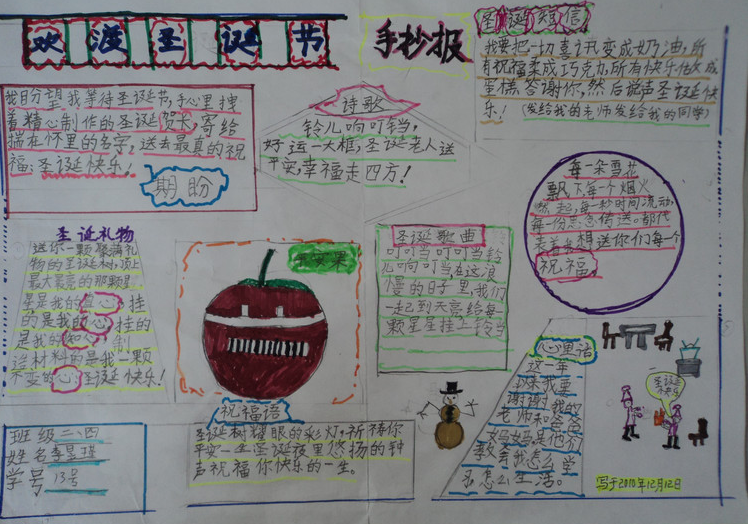 欢渡圣诞节
手抄报
圣诞短信
我要把一切喜讯变成奶油,所
有祝福柔成巧克力,所有快乐做成
蛋糕答谢你,然后说声圣诞快
乐!(发给我的老师发给我的同学)
我日夕望我等待圣诞节,手心里搜
着精心制作的圣诞贺卡,寄给
揣在怀里的名字,送去最真的祝
福:圣诞快乐!
期盼
诗歌
铃儿响叮铛,
好运一大框,圣诞老人送
平安,幸福走四方!
每一朵雪花
飘下每个烟火
燃起,每一秒时间流动,
每一份思念传送。都代
表着我想送你们每一个
祝福,
圣诞礼物
送你一颗聚满礼
物的圣诞树,顶上
最大最亮的那颗星
星是我的真心挂
的是我的心挂的
是我的知心制
涂材料的是我一颗
不变的心:圣诞快乐!
平安果
圣诞歌曲
叮叮当叮叮当铃
儿响叮当在这浪
慢的日子里,我们
一起到天亮给每
颗星星挂上铃当
心里话
这一年
以来我要
谢谢我的
老师和爸爸
妈妈是他们
教育我怎么学
习怎么生活。
圣诞老
快乐
祝福语
圣诞树耀眼的彩灯,祈祷你
平安一生圣诞夜里悠扬的钟
声祝福你快乐的一生。
班级二、四
姓名李昱瑾
学号13号
写于2010年12月12日